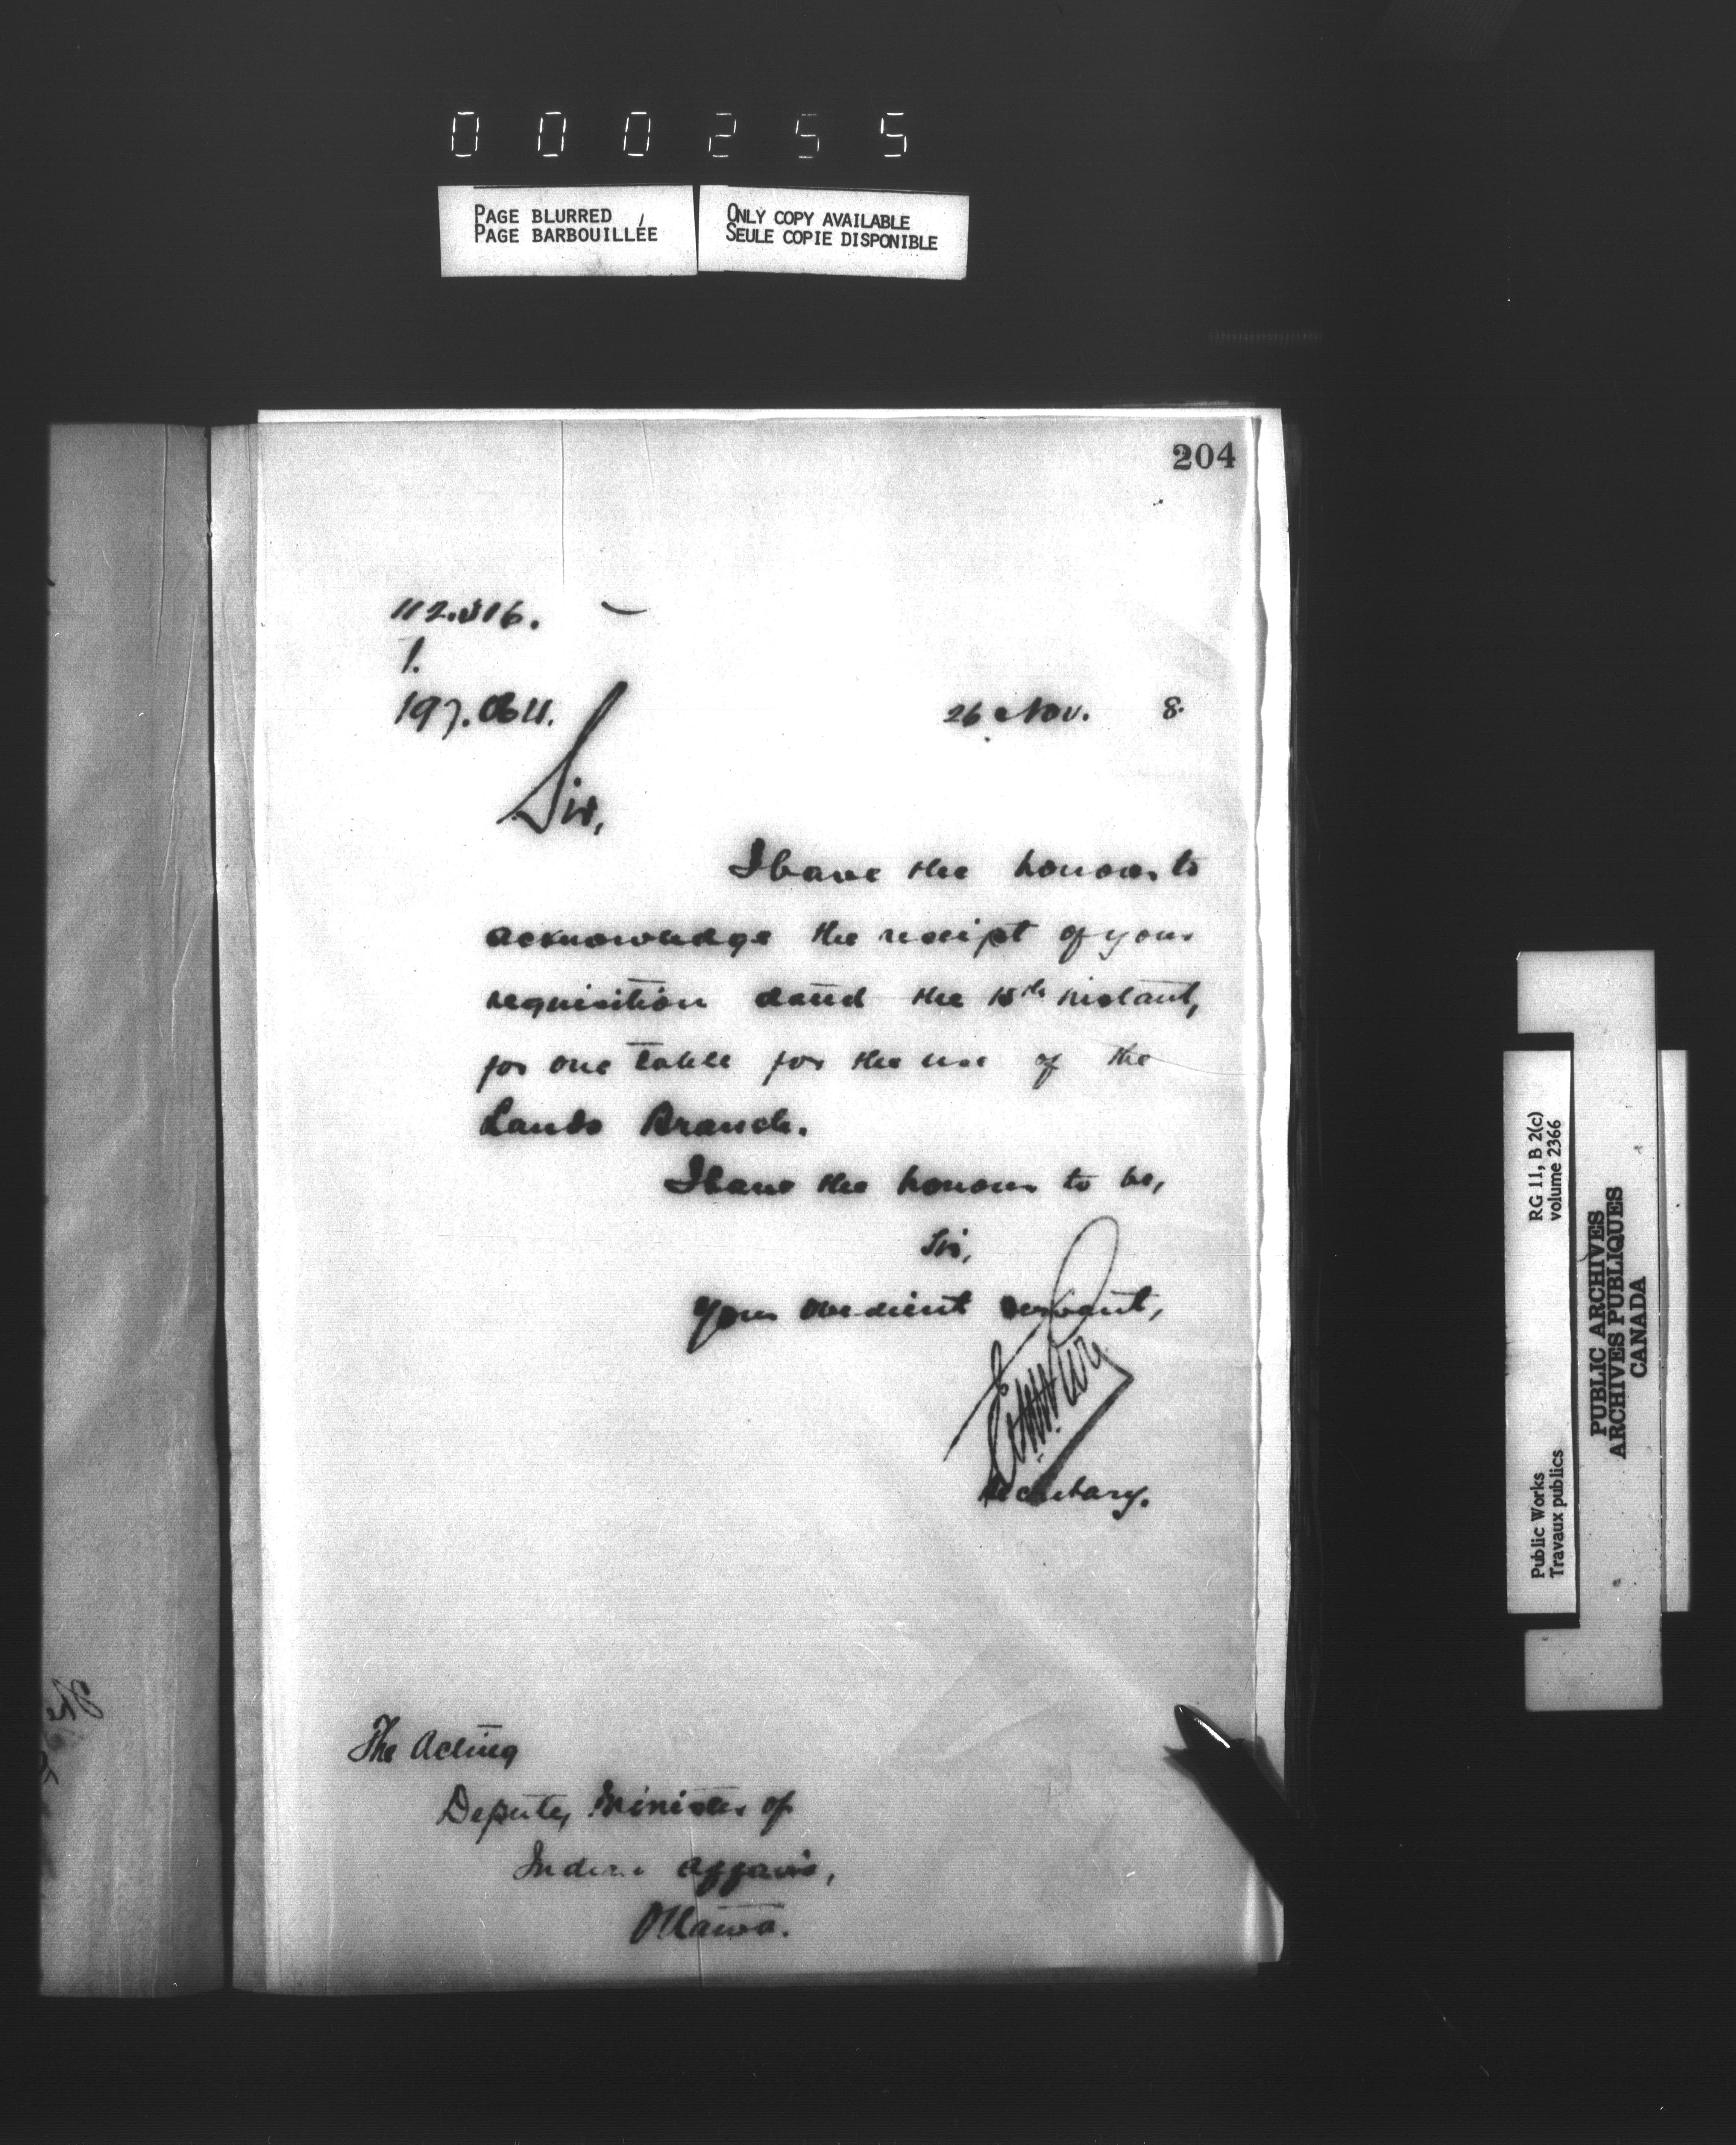 000255
PAGE BLURRED
PAGE BARBOUILLÉE
ONLY COPY AVAILABLE
SEULE COPIE DISPONIBLE
204
1.
26 Nov. 8.
Sir,
I have the honour to
acknowledge the receipt of your
requisition dated the 15th instant,
for one table for the use of the
Lands Branch.
I have the honour to be,
Sir,
Your obedient servant,
Secretary.
The Acting
Deputy Minister of
Indian Affairs,
Ottawa.
The
RG 11, B 2(c)
volume 2366
Public Works
Travaux publics
PUBLIC ARCHIVES
ARCHIVES PUBLIQUES
CANADA